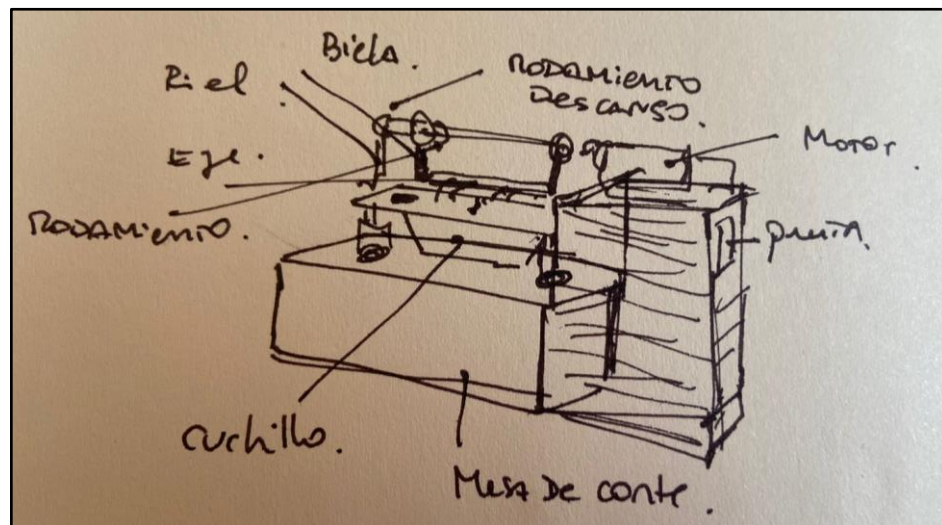 Biela.
Riel.
RODAMIENTO
DESCANSO.
MOTOR.
Eje.
RODAMIENTO.
cuchillo.
Mesa De corte.